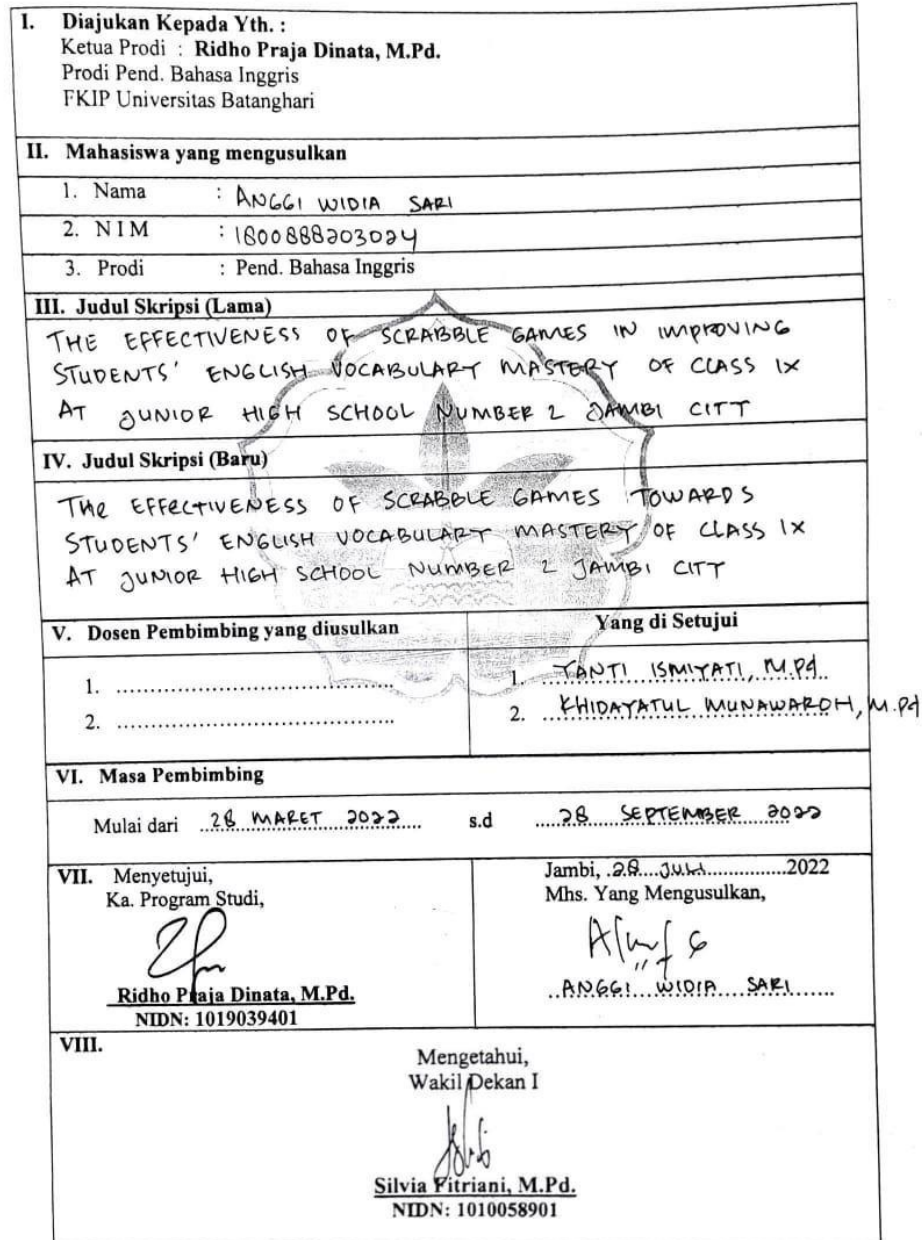 I. Diajukan Kepada Yth. :
Ketua Prodi : Ridho Praja Dinata, M.Pd.
Prodi Pend. Bahasa Inggris
FKIP Universitas Batanghari
II. Mahasiswa yang mengusulkan
1. Nama : ANGGI WIDIA SARI
2. N I M : 1800888203024
3. Prodi : Pend. Bahasa Inggris
III. Judul Skripsi (Lama)
THE EFFECTIVENESS OF SCRABBLE GAMES IN IMPROVING
STUDENTS' ENGLISH VOCABULARY MASTERY OF CLASS IX
AT JUNIOR HIGH SCHOOL NUMBER 2 JAMBI CITY
IV. Judul Skripsi (Baru)
THE EFFECTIVENESS OF SCRABBLE GAMES TOWARDS
STUDENTS' ENGLISH VOCABULARY MASTERY OF CLASS IX
AT JUNIOR HIGH SCHOOL NUMBER 2 JAMBI CITY
V. Dosen Pembimbing yang diusulkan
1. ........................................
2. ........................................
Yang di Setujui
1. YANTI ISMIYATI, M.Pd
2. KHIDAYATUL MUNAWAROH, M.Pd
VI. Masa Pembimbing
Mulai dari 28 MARET 2022 s.d 28 SEPTEMBER 2022
VII. Menyetujui,
Ka. Program Studi,
Ridho Praja Dinata, M.Pd.
NIDN: 1019039401
Jambi, 28 JULI 2022
Mhs. Yang Mengusulkan,
ANGGI WIDIA SARI
VIII.
Mengetahui,
Wakil Dekan I
Silvia Fitriani, M.Pd.
NIDN: 1010058901